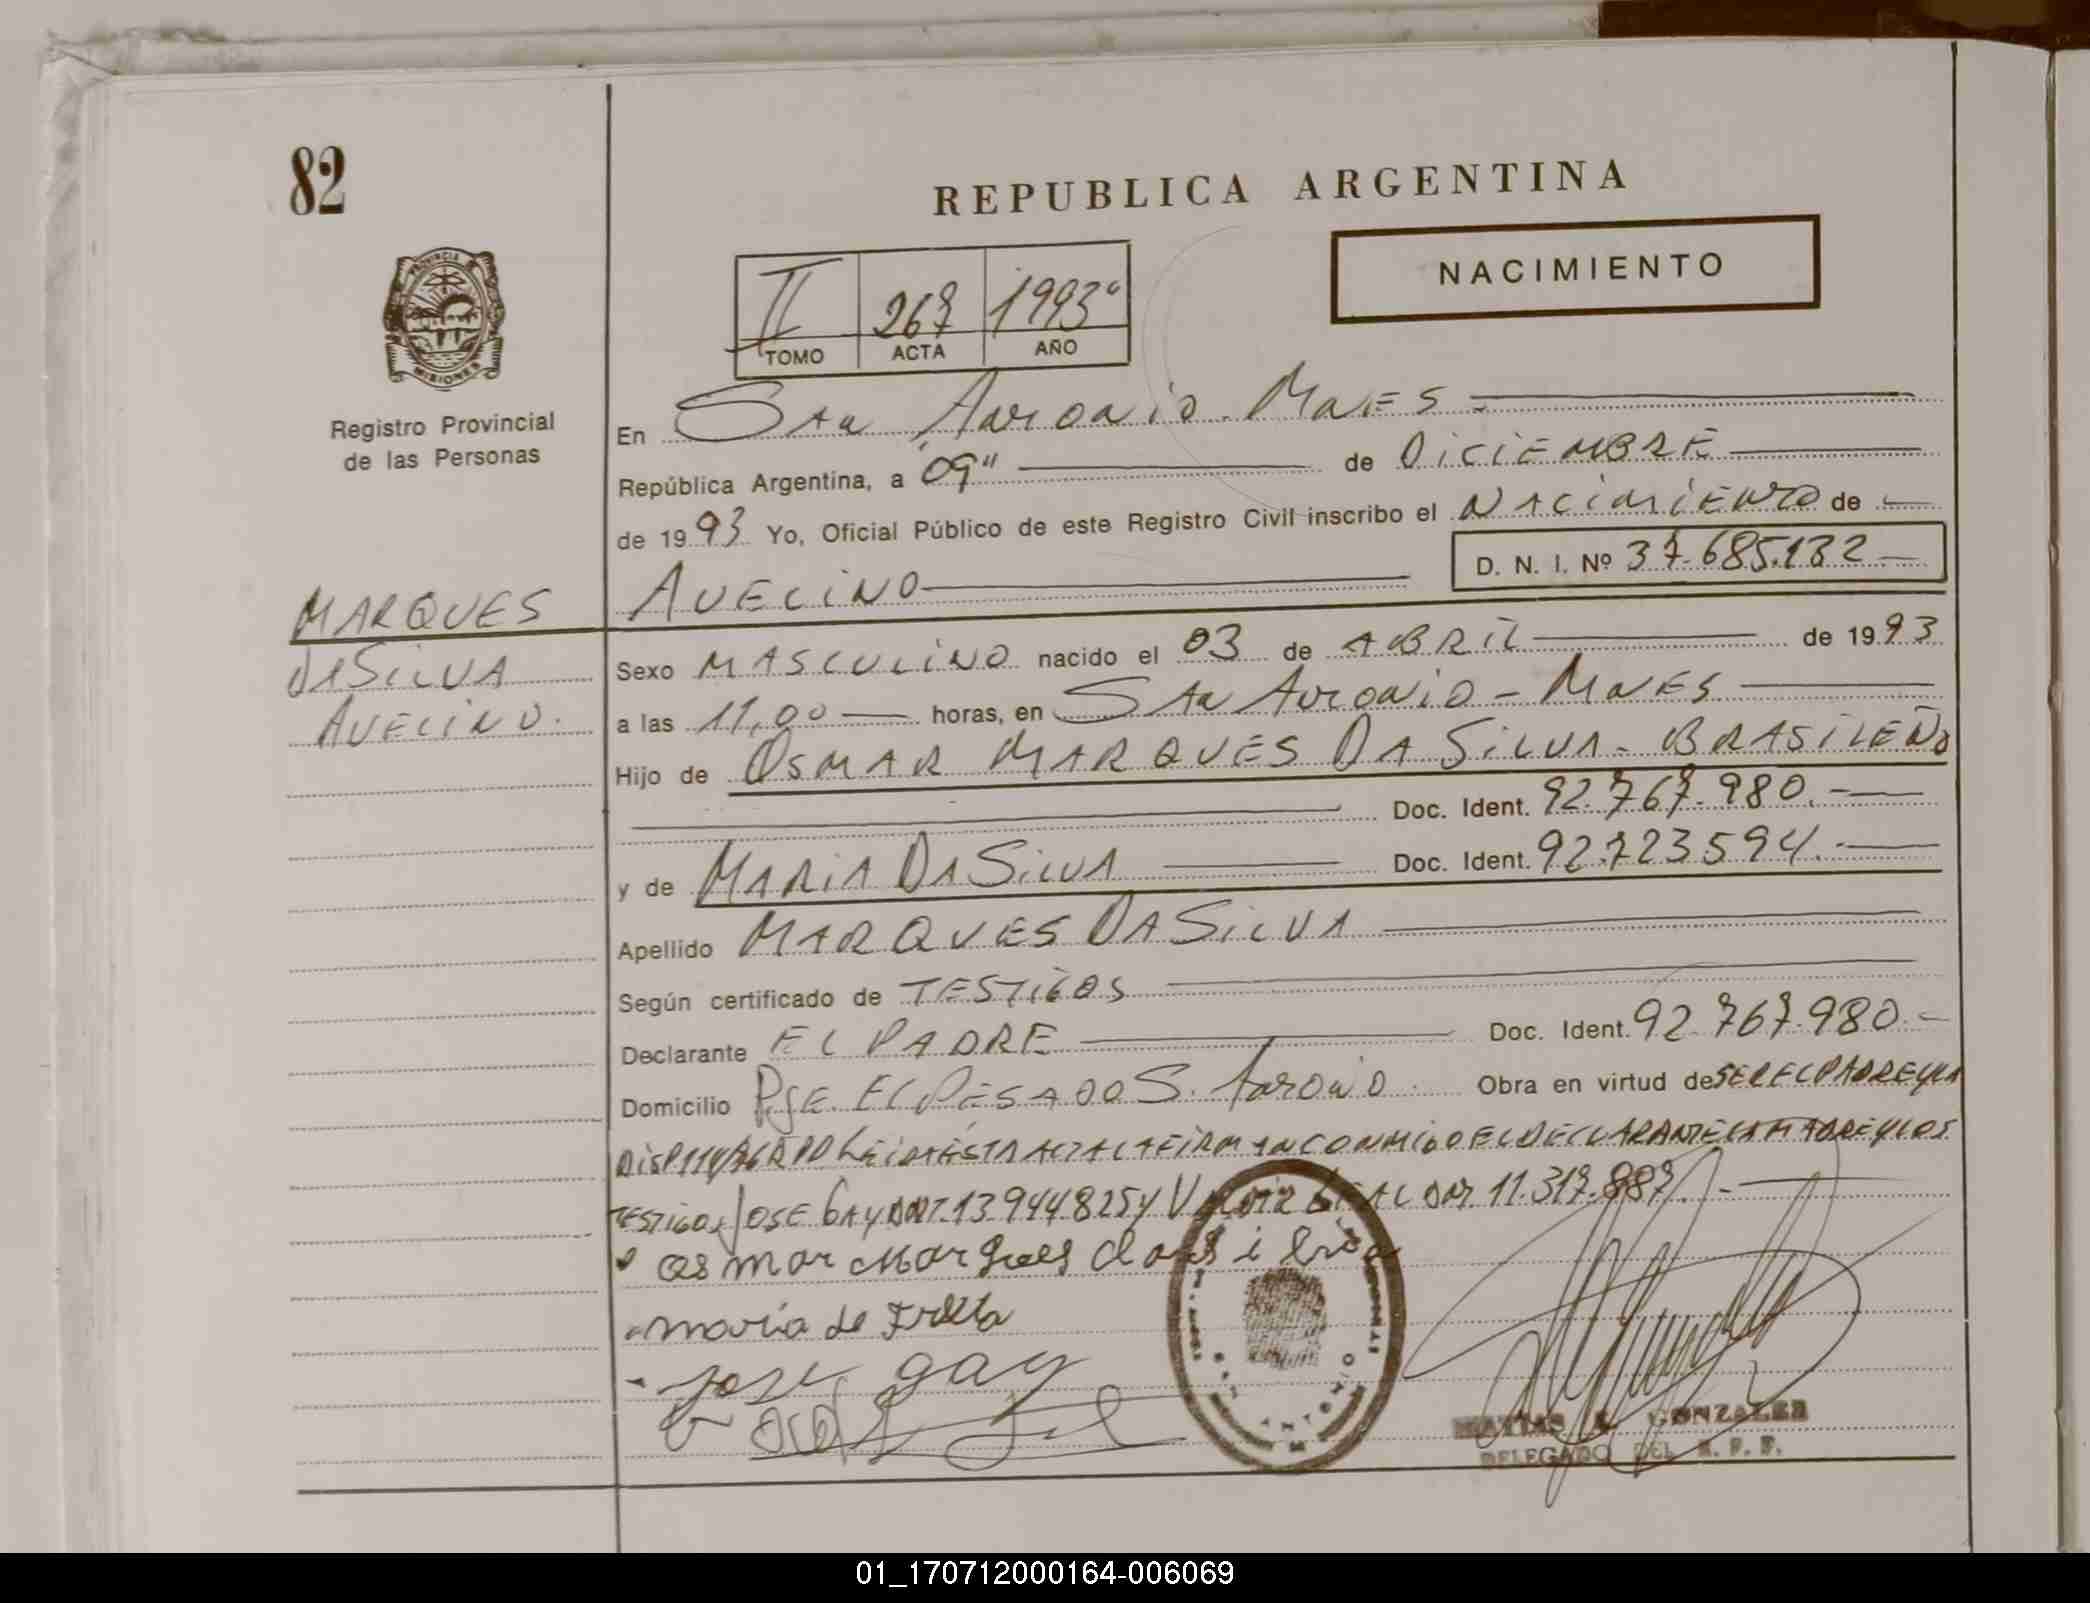 82
REPUBLICA ARGENTINA
NACIMIENTO
II 267 1993
TOMO ACTA AÑO
PROVINCIA DE
MISIONES
Registro Provincial
de las Personas
En San Antonio - Mnes
República Argentina, a 09 de DICIEMBRE
de 1993 Yo, Oficial Público de este Registro Civil inscribo el NACIMIENTO de
D. N. I. Nº 37.685.132
AVELINO
MARQUES
DA SILVA
AVELINO.
Sexo MASCULINO nacido el 03 de ABRIL de 1993
a las 11,00 horas, en San Antonio - Mnes
Hijo de OSMAR MARQUES DA SILVA - BRASILEÑO
Doc. Ident. 92.767.980.-
y de MARIA DA SILVA Doc. Ident. 92.723.594.-
Apellido MARQUES DA SILVA
Según certificado de TESTIGOS
Declarante EL PADRE Doc. Ident. 92.767.980.-
Domicilio Pje. EL PESADO S. Antonio. Obra en virtud de SER EL PADRE Y LA
DISP 114/ LEIDA ESTA ACTA LA FIRMAN CONMIGO EL DECLARANTE LA MADRE Y LOS
TESTIGOS JOSE GAY 13.944.825 Y 11.317.887.-
osmar Marques da silva
maria de
jose gay
MATIAS GONZALEZ
DELEGADO DEL R. P. P.
01_170712000164-006069